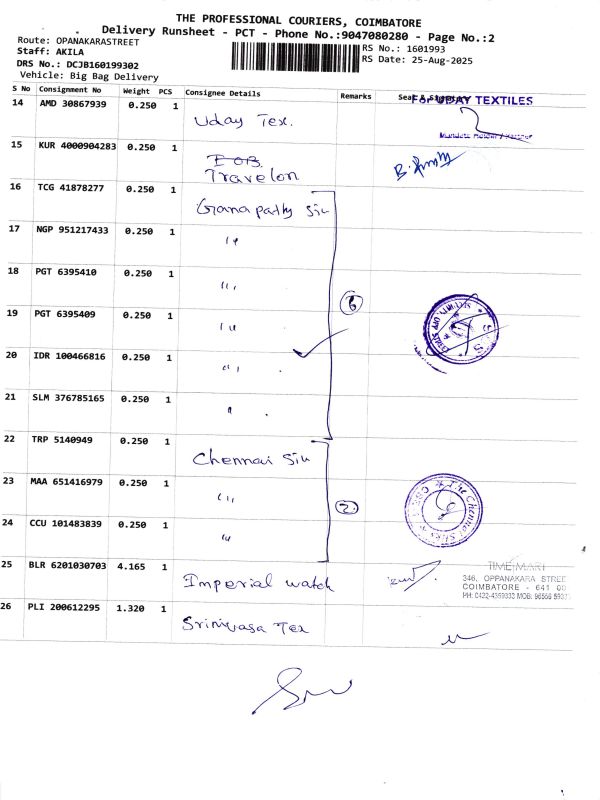 THE PROFESSIONAL COURIERS, COIMBATORE
Delivery Runsheet - PCT - Phone No.:9047080280 - Page No.:2
Route: OPANAKARASTREET
RS No.: 1601993
Staff: AKILA
RS Date: 25-Aug-2025
DRS No.: DCJB160199302
Vehicle: Big Bag Delivery
S No Consignment No Weight PCS Consignee Details Remarks Seal &
For UDAY TEXTILES
14 AMD 30867939 0.250 1 Uday Tex.
15 KUR 4000904283 0.250 1 Travelon
16 TCG 41878277 0.250 1 Ganapathy Silk
17 NGP 951217433 0.250 1 "
18 PGT 6395410 0.250 1 "
19 PGT 6395409 0.250 1 "
20 IDR 100466816 0.250 1 "
21 SLM 376785165 0.250 1 "
6
22 TRP 5140949 0.250 1 Chennai Silk
23 MAA 651416979 0.250 1 "
24 CCU 101483839 0.250 1 "
The Chennai Silks
25 BLR 6201030703 4.165 1 Imperial watch
TIME MART
346, OPPANAKARA STREE
COIMBATORE - 641 00
26 PLI 200612295 1.320 1 Srinivasa Tex